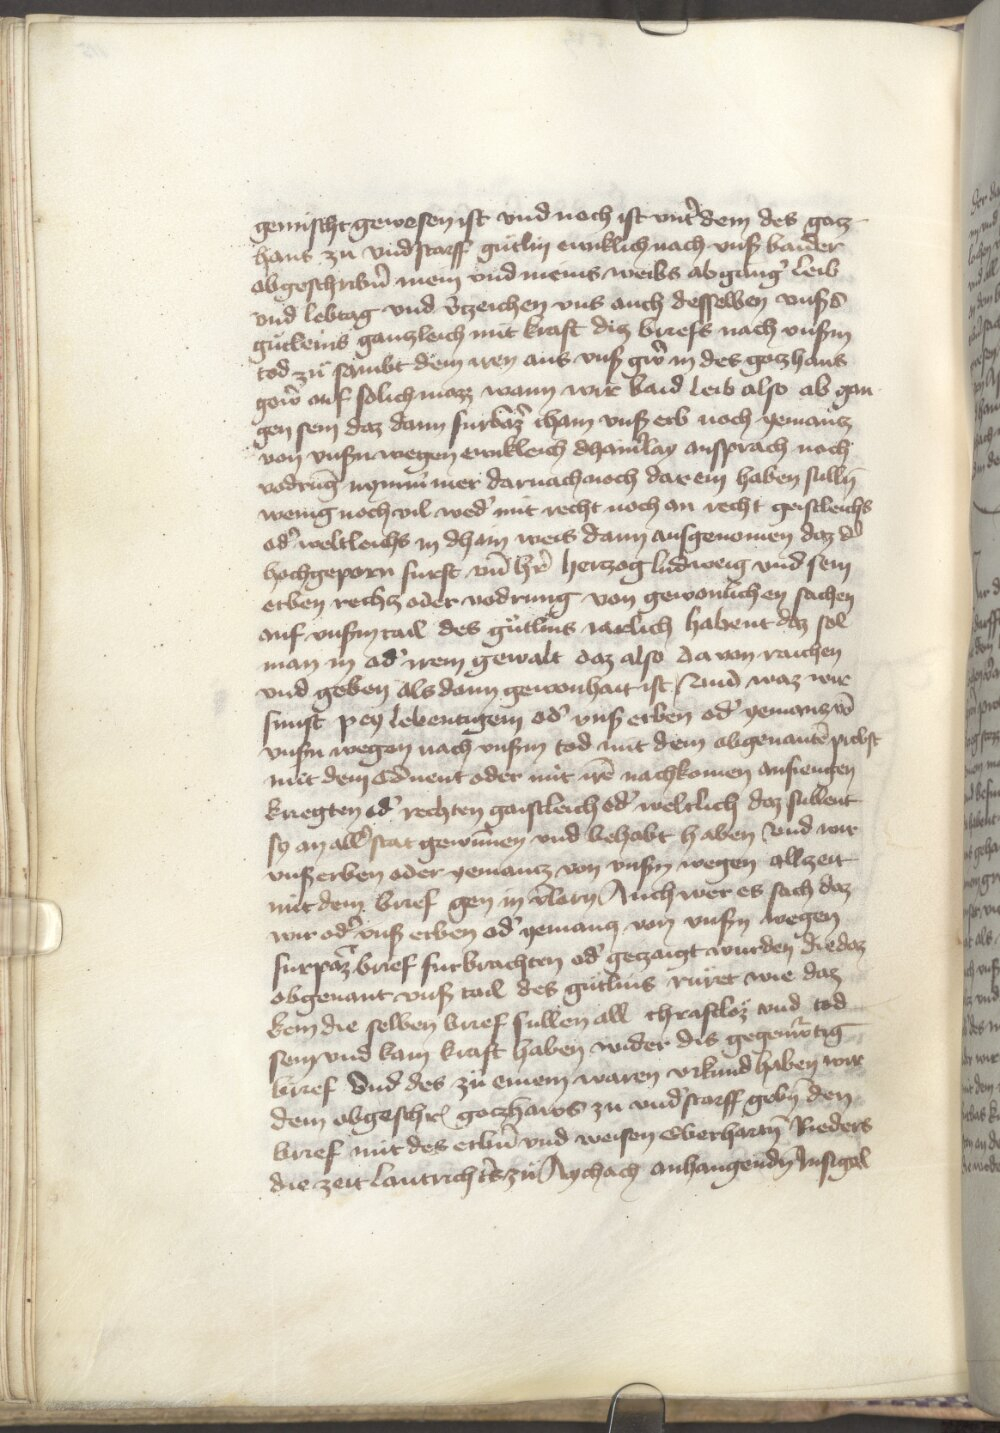 gemischt gewesen ist vnd noch ist vnt᷑ dem des gotz
haus zu vndstorff gutlin ewiklich nach vnß baider
obgeschribñ mein vnd meins weibs abgang᷑ leib
vnd lebtag vnd v᷑tzeichen vns auch desselben vnß᷑s
gütleins gantzleich mit kraft ditz briefs nach vnßm
tod zu sambt dem iren aus vnß gw᷑ in des gotzhaus
gew᷑ auf solich mazz wann wir baid leib also ab gan
gen sein daz dann furbaz᷑ cham vnß erb noch yemantz
von vnßn wegen ewikleich dhainᷣlay ansprach noch
vodrūg nymmͫer darnach noch dar ein haben sullñ
wenig noch vil wed᷑ mit recht noch an recht geistleichs
od᷑ weltleichs in dhain weis dann ausgenomen daz d᷑
hochgeporn furst vñ hr᷑ hertzog ludweig vnd sein
erben rechtz oder vodrung von gewonlichen sachen
auf vnßm tail des gütlins iärlich habent daz sol
man in od᷑ irem gewalt daz also da von raichen
vnd geben als dann gewonhait ist Vnd waz wir
sunst pey lebentigem od᷑ vnß erben od᷑ yemantz vō
vnßn wegen nach vnßm tod mit dem obgenantē probst
mit dem Cōuent oder mit irē nachkomen anfiengen
kriegten od᷑ rechten gaistleich od᷑ weltlich daz sullent
sy an all᷑ stat gewiñen vnd behabt haben vnd wir
vnß erben oder yemantz von vnßn wegen allzeit
mit dem brief gen in v᷑lorn Auch wer es sach daz
wir od᷑ vnß erben od᷑ yemantz von vnßn wegen
furpaz᷑ brief furbrachten od᷑ getzaigt wurden die daz
obgenant vnß tail des gütlins rüret wie daz
kem die selben brief sullen all chraftloz vnd tod
sein vnd kain kraft haben wider dis gegenw᷑tig
brief Vnd des zu einem waren vrkund haben wir
dem obgeschr᷑ gotzhaws zu vnd᷑storff gebñ den
brief mit des erbñ vnd weisen Eberhartñ Rieders
die zeit lantricht᷑s zu Aychach anhangendñ Insigel